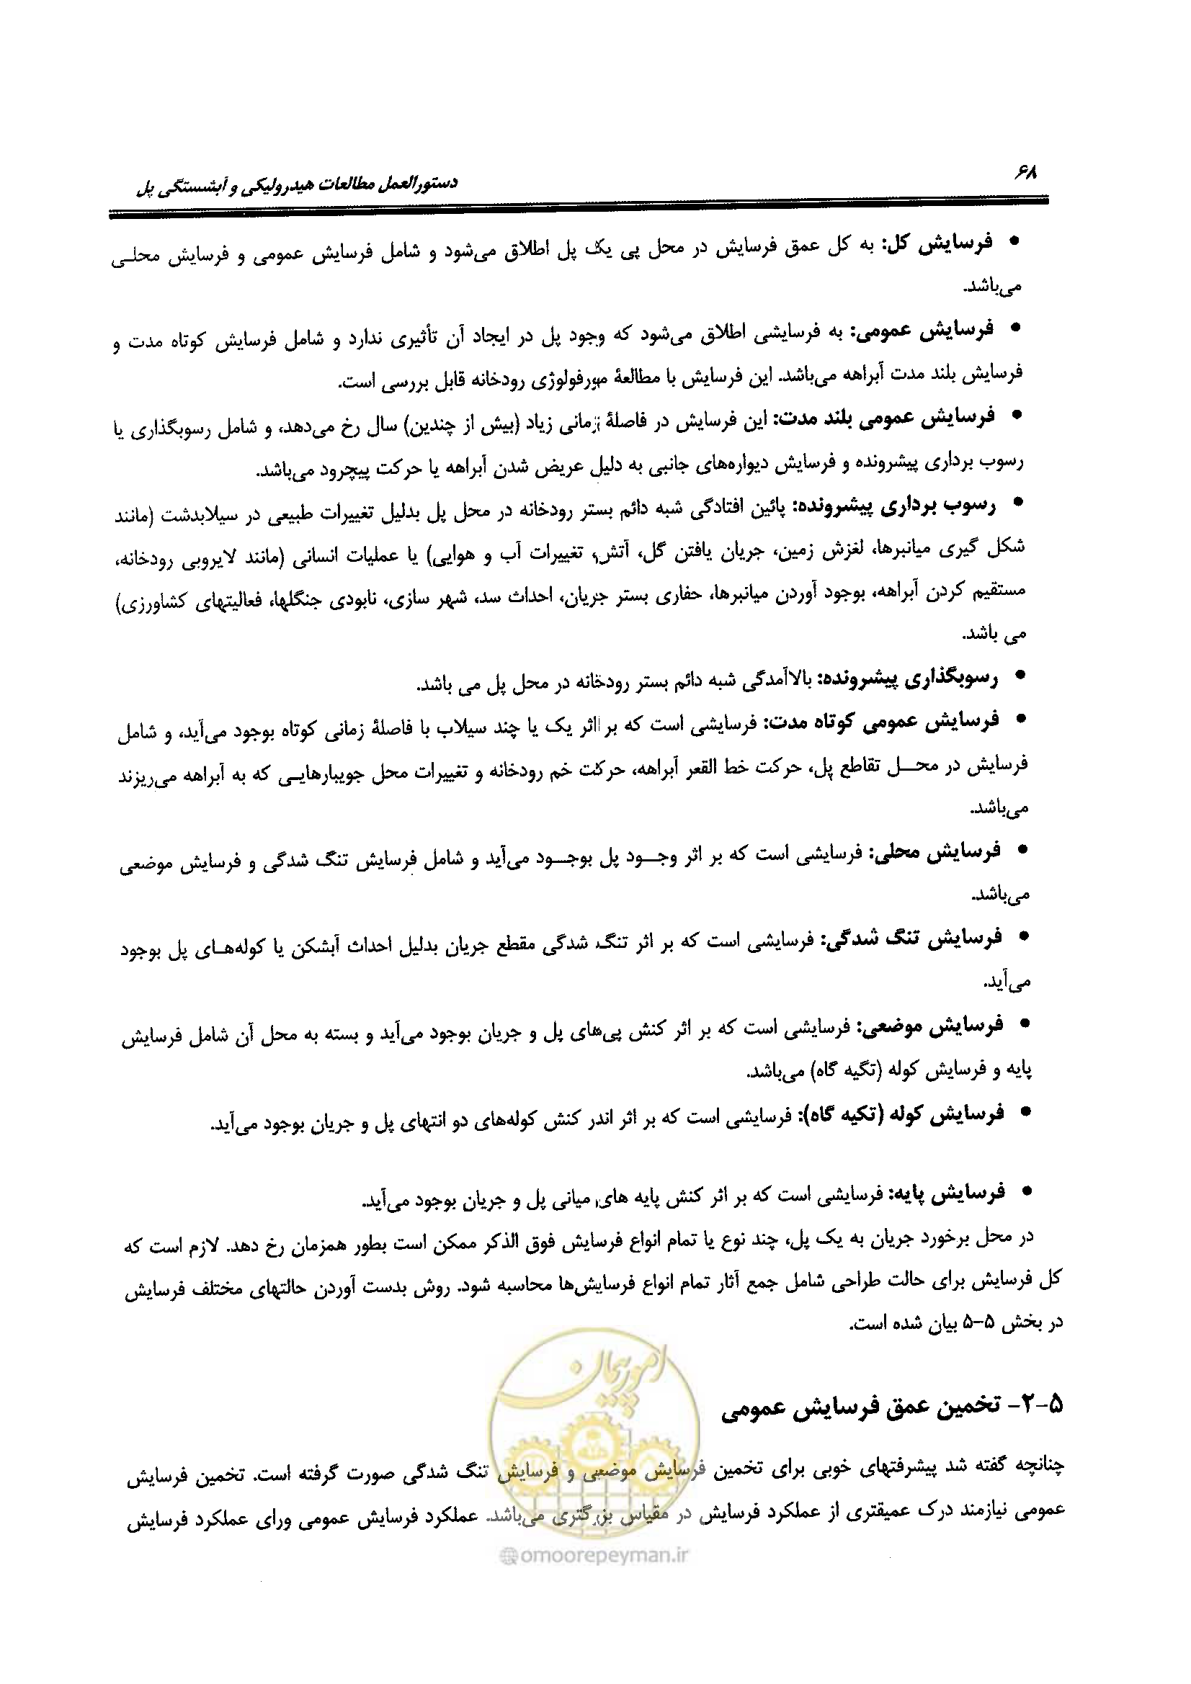 ۶۸
دستورالعمل مطالعات هیدرولیکی و آبشستگی پل
• فرسایش کل: به کل عمق فرسایش در محل پی یک پل اطلاق می‌شود و شامل فرسایش عمومی و فرسایش محلی
می‌باشد.
• فرسایش عمومی: به فرسایشی اطلاق می‌شود که وجود پل در ایجاد آن تأثیری ندارد و شامل فرسایش کوتاه مدت و
فرسایش بلند مدت آبراهه می‌باشد. این فرسایش با مطالعهٔ مورفولوژی رودخانه قابل بررسی است.
• فرسایش عمومی بلند مدت: این فرسایش در فاصلهٔ زمانی زیاد (بیش از چندین) سال رخ می‌دهد، و شامل رسوبگذاری یا
رسوب برداری پیشرونده و فرسایش دیواره‌های جانبی به دلیل عریض شدن آبراهه یا حرکت پیچرود می‌باشد.
• رسوب برداری پیشرونده: پائین افتادگی شبه دائم بستر رودخانه در محل پل بدلیل تغییرات طبیعی در سیلابدشت (مانند
شکل گیری میانبرها، لغزش زمین، جریان یافتن گل، آتش، تغییرات آب و هوایی) یا عملیات انسانی (مانند لایروبی رودخانه،
مستقیم کردن آبراهه، بوجود آوردن میانبرها، حفاری بستر جریان، احداث سد، شهر سازی، نابودی جنگلها، فعالیتهای کشاورزی)
می باشد.
• رسوبگذاری پیشرونده: بالاآمدگی شبه دائم بستر رودخانه در محل پل می باشد.
• فرسایش عمومی کوتاه مدت: فرسایشی است که بر اثر یک یا چند سیلاب با فاصلهٔ زمانی کوتاه بوجود می‌آید، و شامل
فرسایش در محل تقاطع پل، حرکت خط القعر آبراهه، حرکت خم رودخانه و تغییرات محل جویبارهایی که به آبراهه می‌ریزند
می‌باشد.
• فرسایش محلی: فرسایشی است که بر اثر وجود پل بوجود می‌آید و شامل فرسایش تنگ شدگی و فرسایش موضعی
می‌باشد.
• فرسایش تنگ شدگی: فرسایشی است که بر اثر تنگ شدگی مقطع جریان بدلیل احداث آبشکن یا کوله‌های پل بوجود
می‌آید.
• فرسایش موضعی: فرسایشی است که بر اثر کنش پی‌های پل و جریان بوجود می‌آید و بسته به محل آن شامل فرسایش
پایه و فرسایش کوله (تگیه گاه) می‌باشد.
• فرسایش کوله (تکیه گاه): فرسایشی است که بر اثر اندر کنش کوله‌های دو انتهای پل و جریان بوجود می‌آید.
• فرسایش پایه: فرسایشی است که بر اثر کنش پایه های میانی پل و جریان بوجود می‌آید.
در محل برخورد جریان به یک پل، چند نوع یا تمام انواع فرسایش فوق الذکر ممکن است بطور همزمان رخ دهد. لازم است که
کل فرسایش برای حالت طراحی شامل جمع آثار تمام انواع فرسایش‌ها محاسبه شود. روش بدست آوردن حالتهای مختلف فرسایش
در بخش ۵-۵ بیان شده است.
۵-۲- تخمین عمق فرسایش عمومی
چنانچه گفته شد پیشرفتهای خوبی برای تخمین فرسایش موضعی و فرسایش تنگ شدگی صورت گرفته است. تخمین فرسایش
عمومی نیازمند درک عمیقتری از عملکرد فرسایش در مقیاس بزرگتری می‌باشد. عملکرد فرسایش عمومی ورای عملکرد فرسایش
امور پیمان
@omoorepeyman.ir